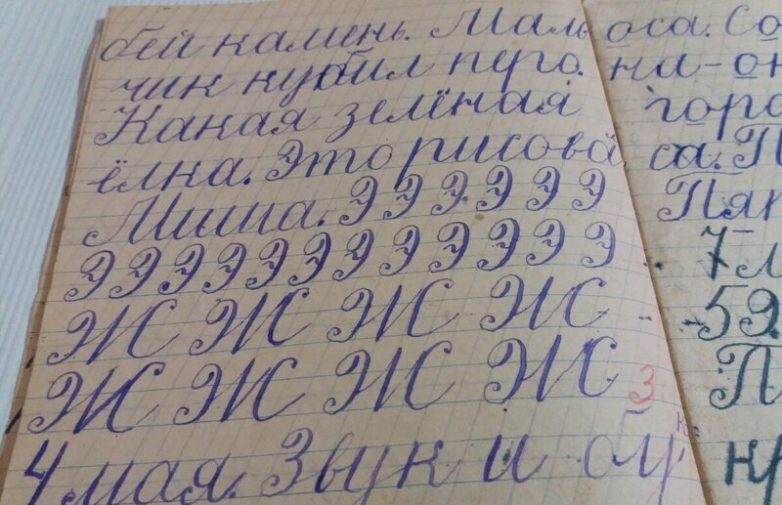 бей камень. Маль
чик кубил перо.
Какая зелёная
ёлка. Это рисова
Миша. Э Э Э Э Э Э Э
Э Э Э Э Э Э Э Э Э Э Э Э
Ж Ж Ж Ж
Ж Ж Ж Ж 3
4 мая. Звук и
оса. Со
на-он
горо
са. П
Пян
7 л
59
П
кр